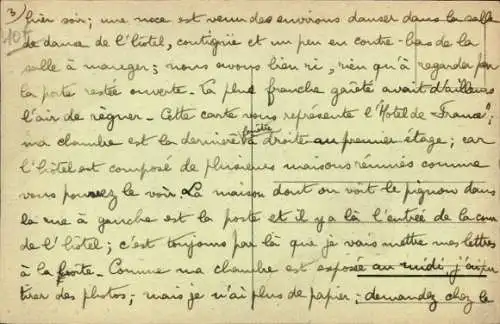 3)
105
hier soir; une noce est venu des environs danser dans la salle
de danse de l'hôtel, contiguë et un peu en contre-bas de la
salle à manger; nous avons bien ri, rien qu'à regarder par
la porte restée ouverte. La plus franche gaîeté avait d'ailleurs
l'air de régner. Cette carte vous représente l'"Hôtel de France";
fenêtre
ma chambre est la dernière à droite au premier étage; car
l'hôtel est composé de plusieurs maisons réunies comme
vous pouvez le voir. La maison dont on voit le pignon dans
la rue à gauche est la poste et il y a là l'entrée de la cour
de l'hôtel; c'est toujours par là que je vais mettre mes lettres
à la poste. Comme ma chambre est exposée au midi, j'ai pu
tirer des photos; mais je n'ai plus de papier; demandez chez le